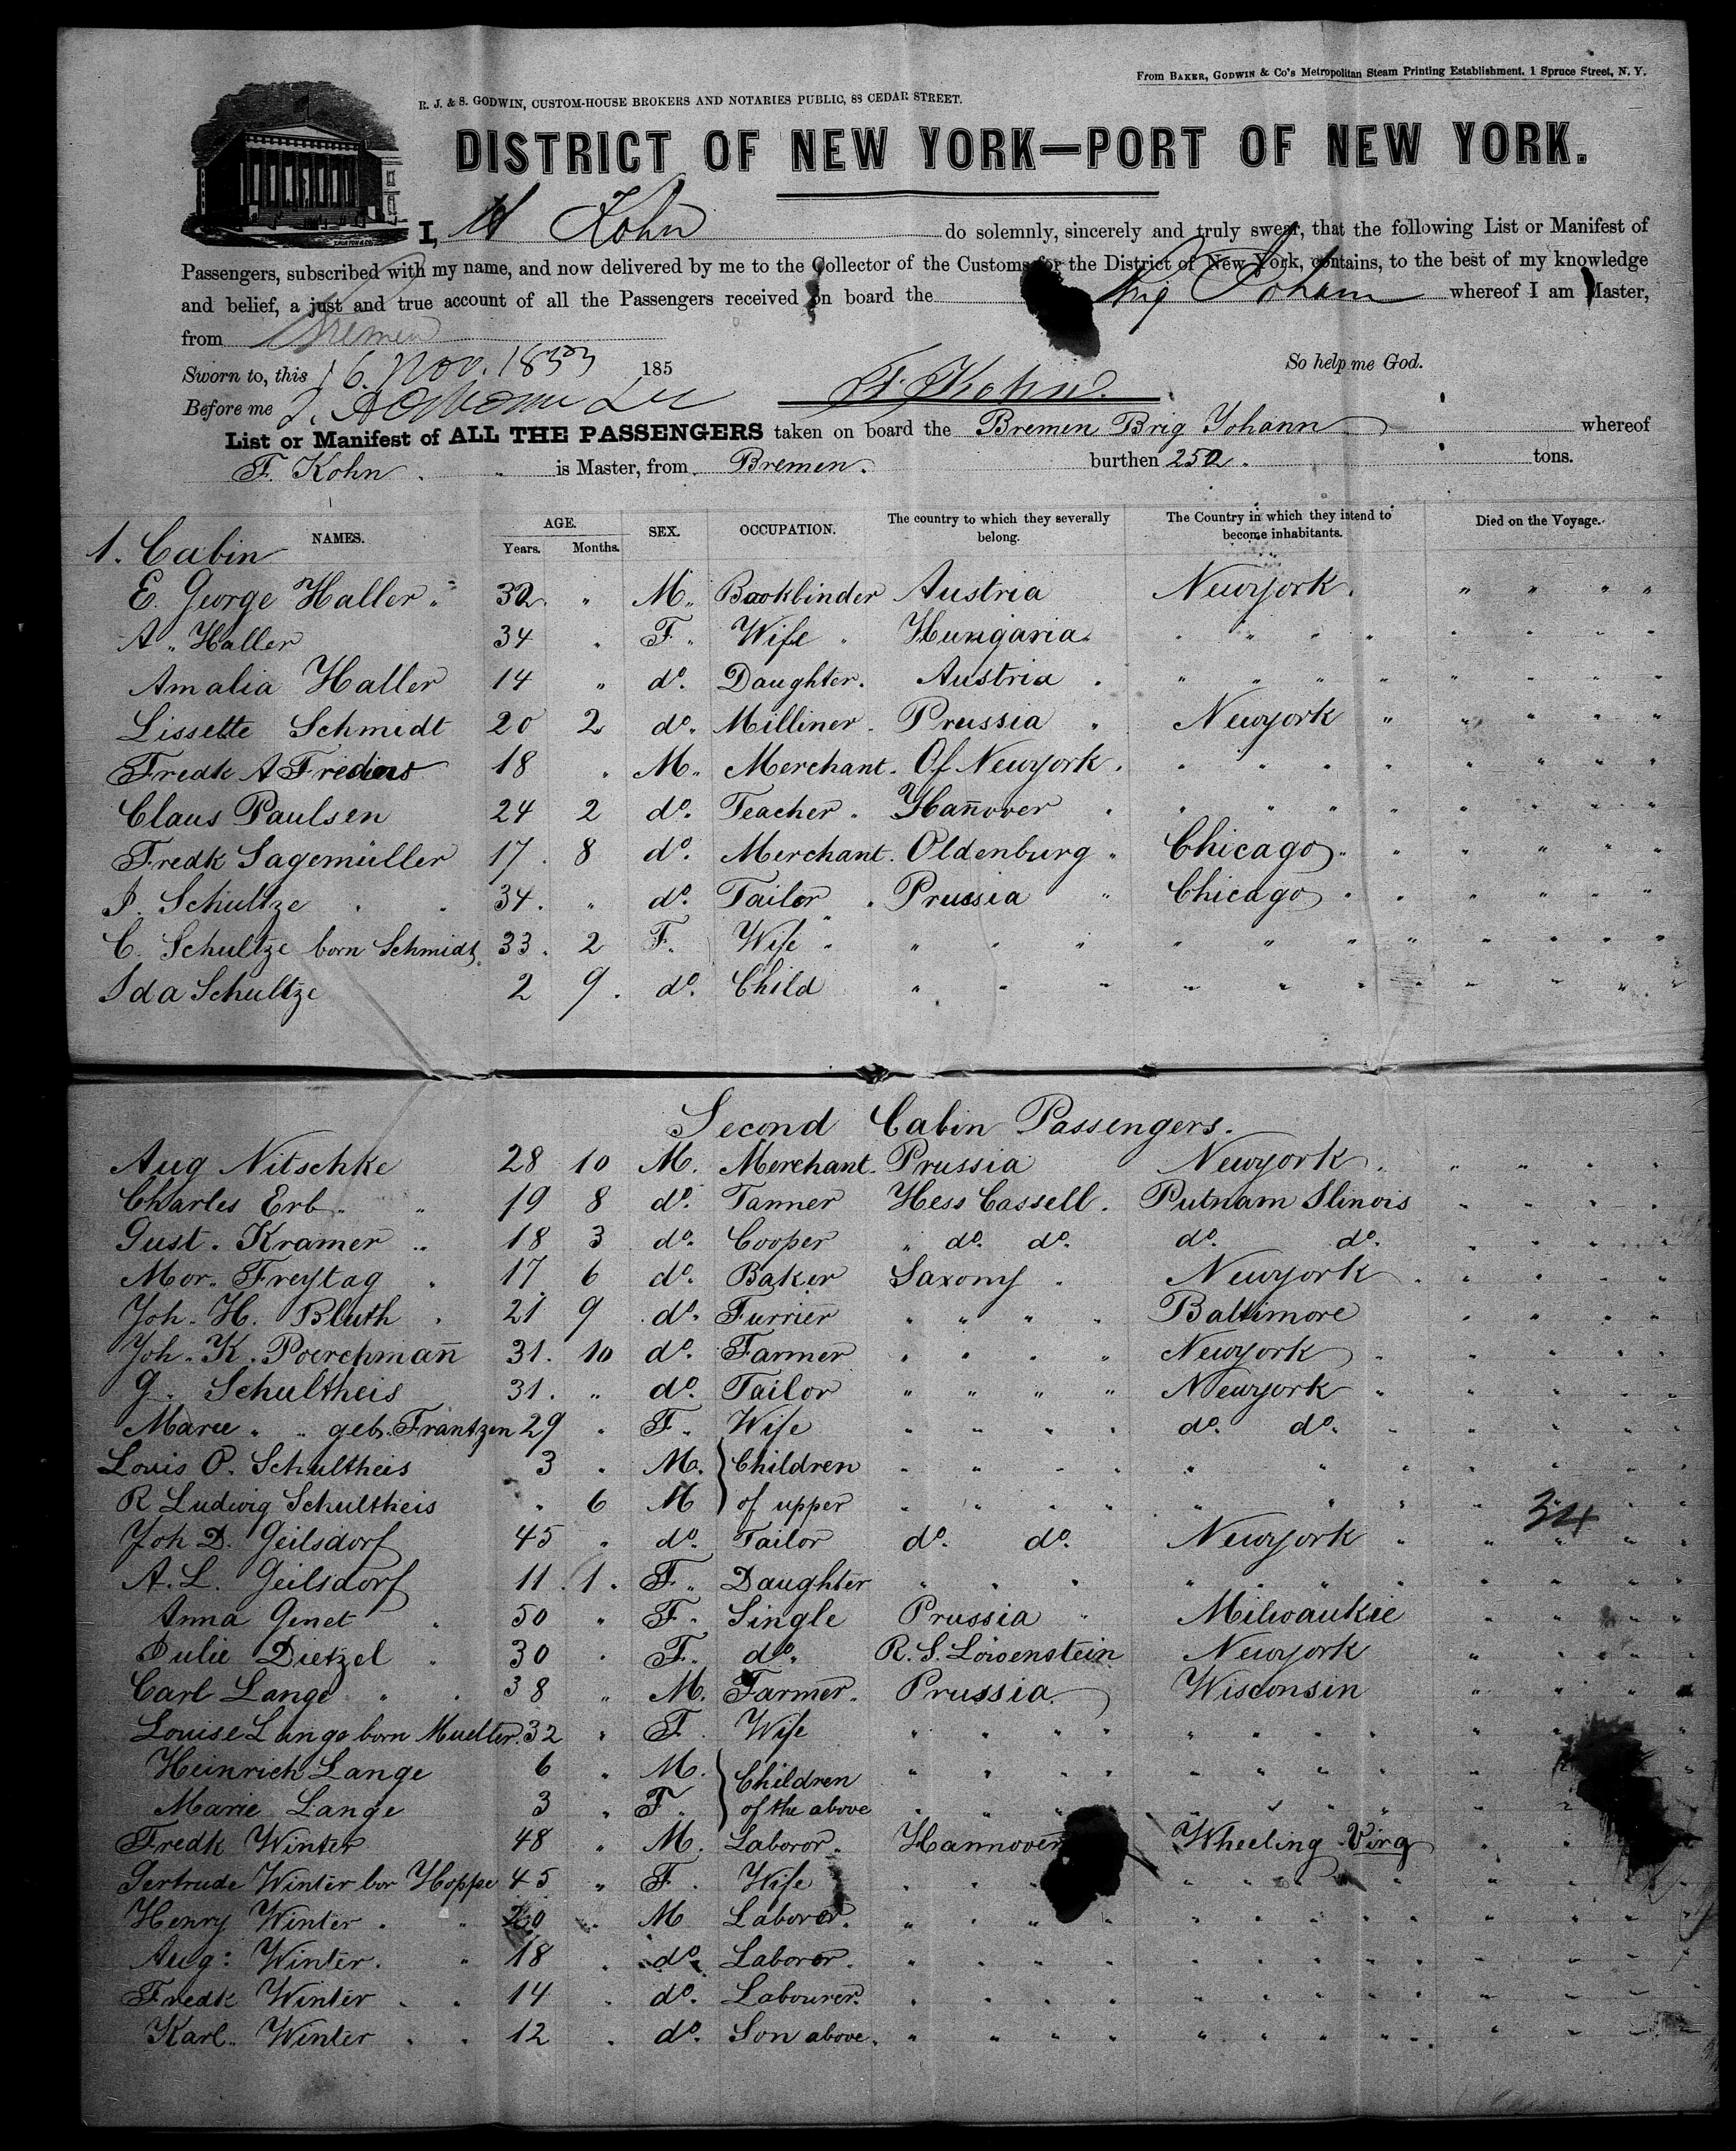 From BAKER, GODWIN & Co's Metropolitan Steam Printing Establishment. 1 Spruce Street, N. Y.
R. J. & S. GODWIN, CUSTOM-HOUSE BROKERS AND NOTARIES PUBLIC, 88 CEDAR STREET.
DISTRICT OF NEW YORK—PORT OF NEW YORK.
I, Kohn do solemnly, sincerely and truly swear, that the following List or Manifest of
Passengers, subscribed with my name, and now delivered by me to the Collector of the Customs for the District of New York, contains, to the best of my knowledge
and belief, a just and true account of all the Passengers received on board the Brig Johann whereof I am Master,
from Bremen
Sworn to, this 16. Nov. 1853 185 So help me God.
Before me F. Kohn.
List or Manifest of ALL THE PASSENGERS taken on board the Bremen Brig Johann whereof
F. Kohn. is Master, from Bremen. burthen 250. tons.
NAMES. AGE. Years. Months. SEX. OCCUPATION. The country to which they severally belong. The Country in which they intend to become inhabitants. Died on the Voyage.
1. Cabin
E. George Haller " 32. " M. Bookbinder Austria Newyork. " " " "
A. Haller 34 " F. Wife " Hungaria. " " " " " " " "
Amalia Haller 14 " do. Daughter. Austria . " " " " " " " "
Lissette Schmidt 20 2 do. Milliner. Prussia " Newyork " " " " "
Fredk A 18 " M. Merchant. Of Newyork. " " " " " " " "
Claus Paulsen 24 2 do. Teacher. Hañnover " " " " " " " " "
Fredk Sagemüller 17. 8 do. Merchant. Oldenburg " Chicago. " " " " "
J. Schultze 34. " do. Tailor . Prussia " Chicago . " " " " "
C. Schultze born Schmidt. 33. 2 F. Wife " " " " " " " " " " " "
Ida Schultze 2 9. do. Child " " " " " " " " " " "
Second Cabin Passengers.
Aug Nitschke 28 10 M. Merchant. Prussia Newyork. " " " "
Charles Erb " " 19 8 do. Tanner Hess Cassell. Putnam Ilinois " " " "
Gust. Kramer " 18 3 do. Cooper " do. do. do. do. " " " "
Mor. Freytag . 17 6 do. Baker Saxony . Newyork . " " " "
Joh. H. Bluth . 21 9 do. Furrier " " " " Baltimore " " " "
Joh. K. Poerchmañ 31. 10 do. Farmer " " " " Newyork " " " " "
G. Schultheis 31. " do. Tailor " " " " Newyork " " " " "
Marie " " geb. Frantzen 29 " F. Wife " " " " do. do. " " " " "
Louis O. Schultheis 3 " M. } Children " " " " " " " " " " "
R Ludwig Schultheis " 6 M } of upper " " " " " " " " " " "
34
Joh D. Geilsdorf 45 " do. Tailor do. do. Newyork " " " " "
A. L. Geilsdorf 11. 1. F. Daughter " " " " " " " " " " "
Anna Genet . 50 " F. Single Prussia " Milwaukie " " " "
Julie Dietzel . 30 " F. do. R. S. Löwenstein Newyork " " " "
Carl Lange " . 38 " M. Farmer. Prussia. Wisconsin " " " "
Louise Lange born Mueller. 32 " F. Wife " " " " " " " " " " " "
Heinrich Lange 6 " M. } Children " " " " " " " " " "
Marie Lange 3 " F. } of the above " " " " " " " " "
Fredk Winter 48 " M. Laboror. Hannover Wheeling Virg " "
Gertrude Winter bor Hoppe 45 " F. Wife " " " " " " " " " " "
Henry Winter . " 20 " M Laboror. " " " " " " " " " " " "
Aug: Winter. " 18 . do. Laboror. " " " " " " " " " " " "
Fredk Winter . . 14 . do. Labourer. " " " " " " " " " " " "
Karl. Winter . . 12 . do. Son above. " " " " " " " " " " " "